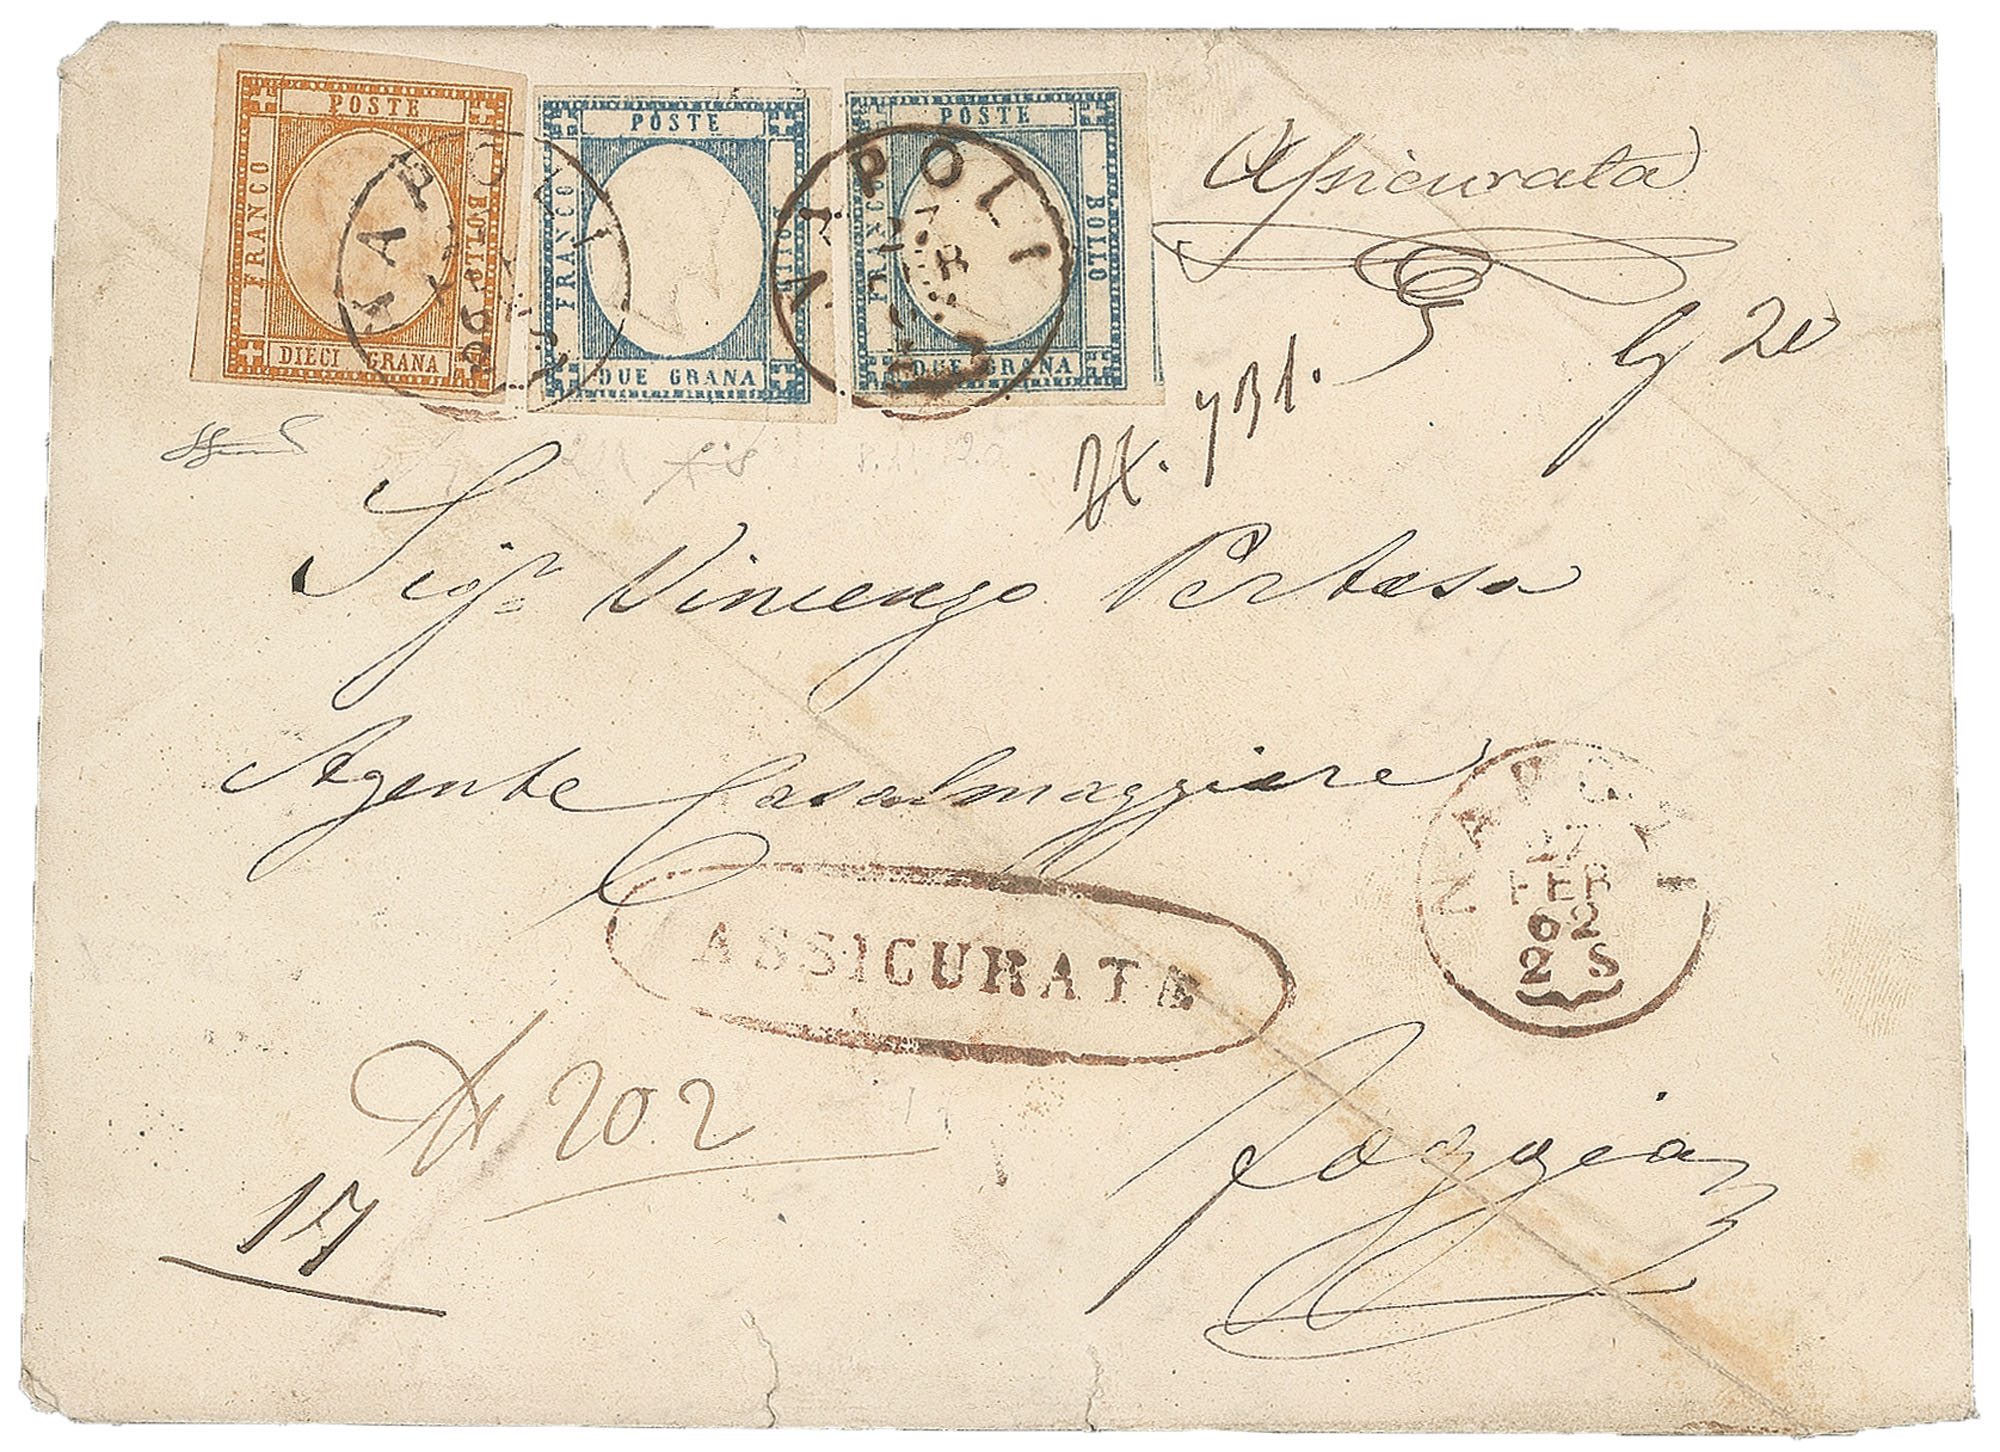 POSTE
FRANCO
BOLLO
DIECI GRANA
POSTE
FRANCO
DUE GRANA
POSTE
FRANCO
BOLLO
DUE GRANA
NAPOLI
NAPOLI
Assicurata
731.
20
Sigr Vincenzo Pertosa
Agente Casalmaggiore
NAPOLI
27
FEB
62
2 S
ASSICURATE
202
17
Foggia